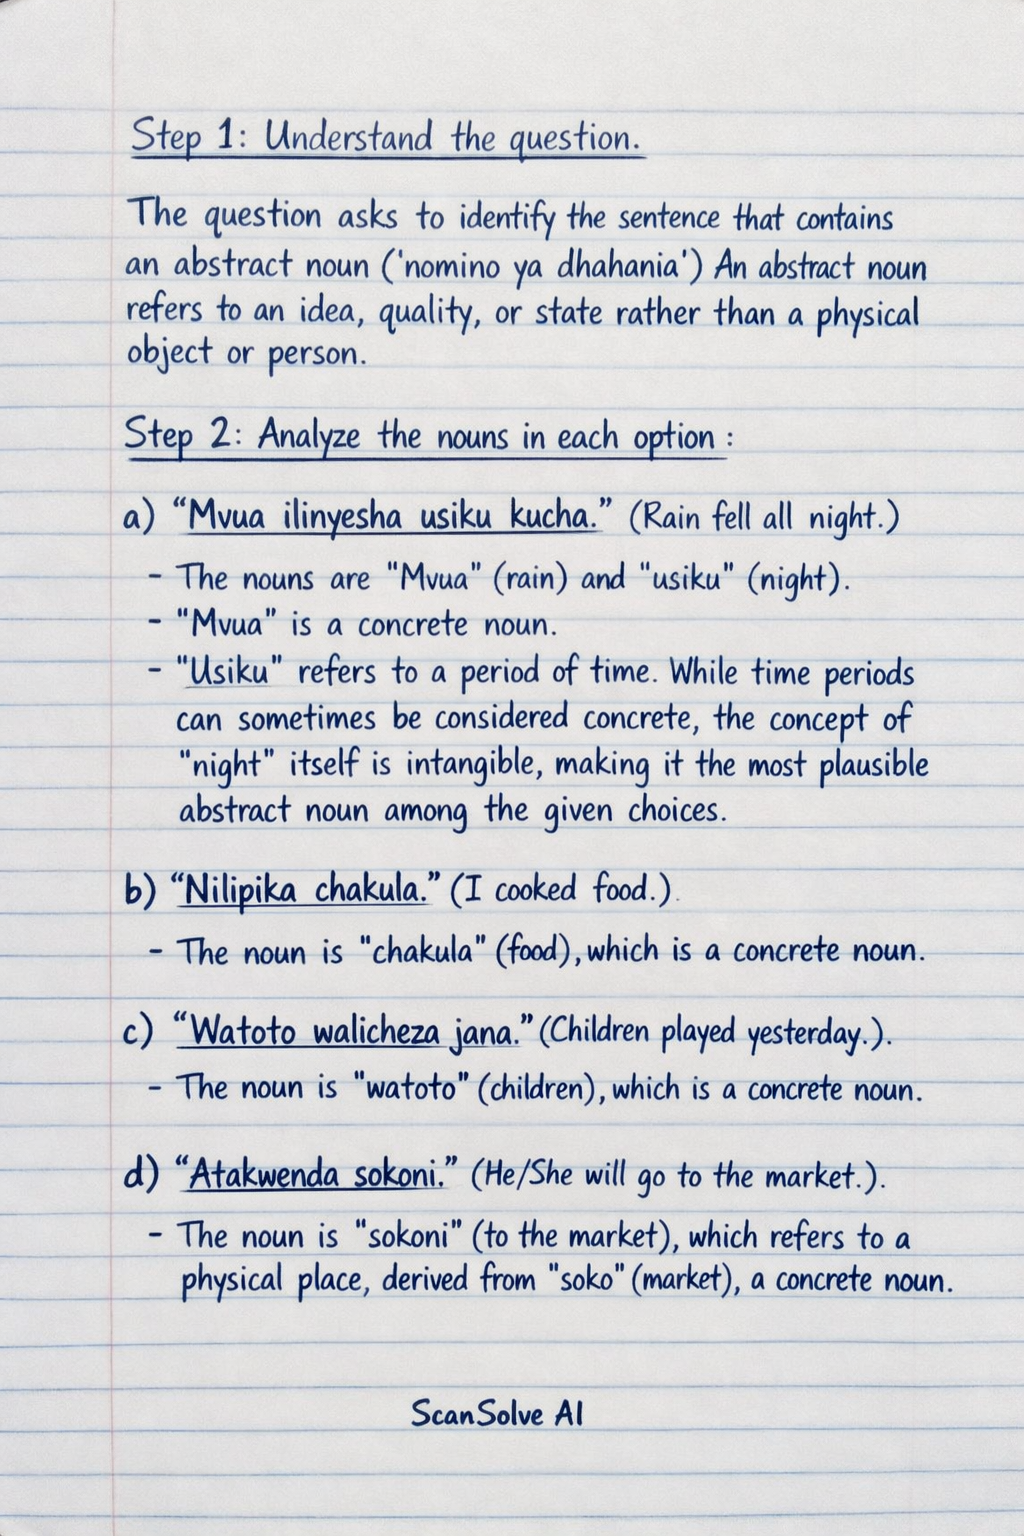 Step 1: Understand the question.
The question asks to identify the sentence that contains
an abstract noun ('nomino ya dhahania') An abstract noun
refers to an idea, quality, or state rather than a physical
object or person.
Step 2: Analyze the nouns in each option :
a) “Mvua ilinyesha usiku kucha.” (Rain fell all night.)
- The nouns are "Mvua" (rain) and "usiku" (night).
- "Mvua" is a concrete noun.
- "Usiku" refers to a period of time. While time periods
can sometimes be considered concrete, the concept of
"night" itself is intangible, making it the most plausible
abstract noun among the given choices.
b) “Nilipika chakula.” (I cooked food.)
- The noun is "chakula" (food), which is a concrete noun.
c) “Watoto walicheza jana.” (Children played yesterday.).
- The noun is "watoto" (children), which is a concrete noun.
d) “Atakwenda sokoni.” (He/She will go to the market.).
- The noun is "sokoni" (to the market), which refers to a
physical place, derived from "soko" (market), a concrete noun.
ScanSolve AI